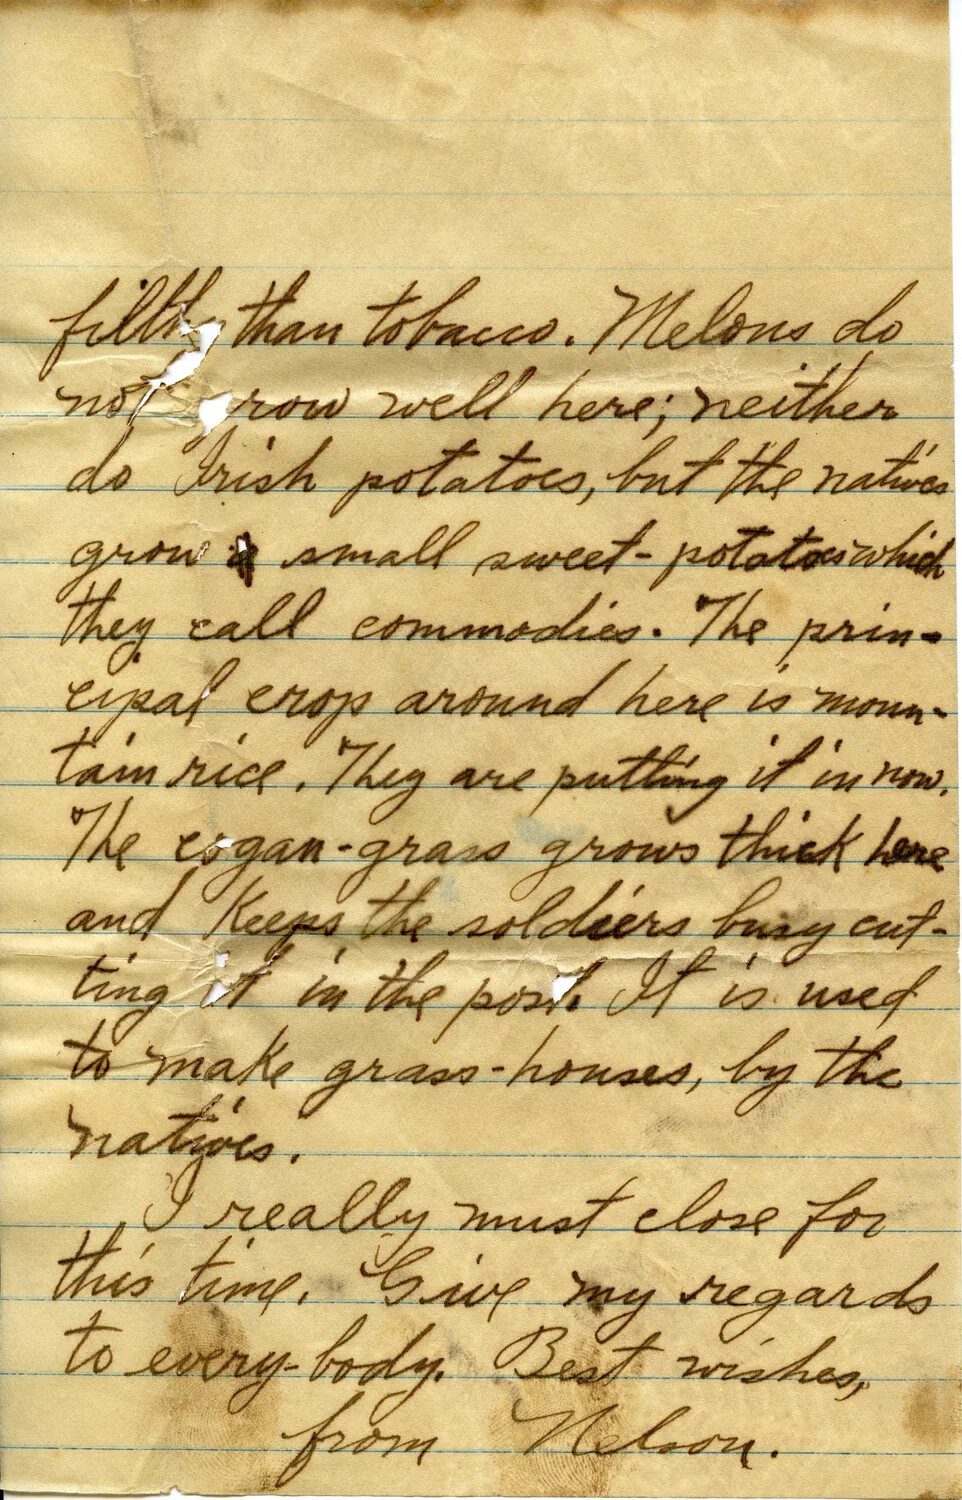 filthy than tobacco. Melons do
not grow well here; neither
do Irish potatoes, but the natives
grow a small sweet-potatoes which
they call commodies. The prin-
cipal crop around here is moun-
tain rice. They are putting it in now.
The cogan-grass grows thick here
and keeps the soldiers busy cut-
ting it in the post. It is used
to make grass-houses, by the
natives.
I really must close for
this time. Give my regards
to every-body. Best wishes,
from Nelson.